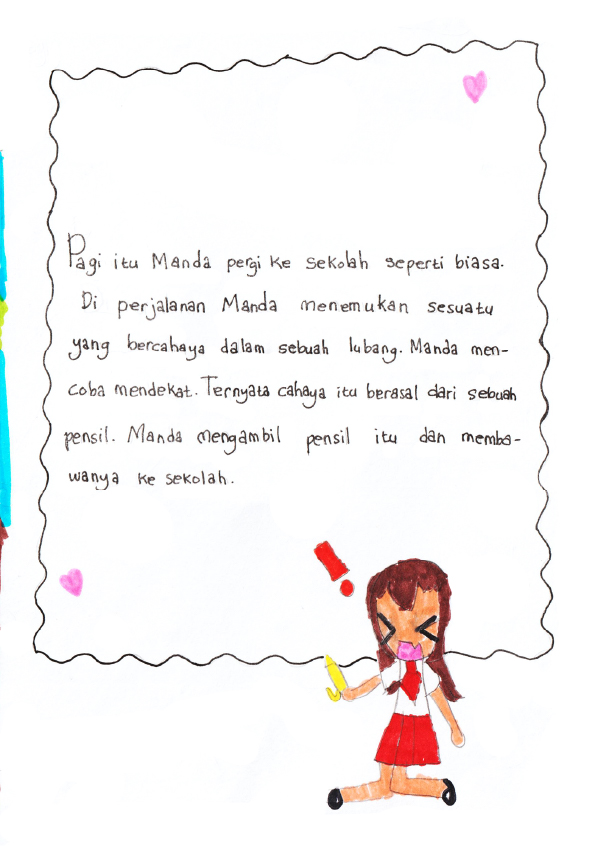 Pagi itu Manda pergi ke sekolah seperti biasa.
Di perjalanan Manda menemukan sesuatu
yang bercahaya dalam sebuah lubang. Manda men-
coba mendekat. Ternyata cahaya itu berasal dari sebuah
pensil. Manda mengambil pensil itu dan memba-
wanya ke sekolah.
!